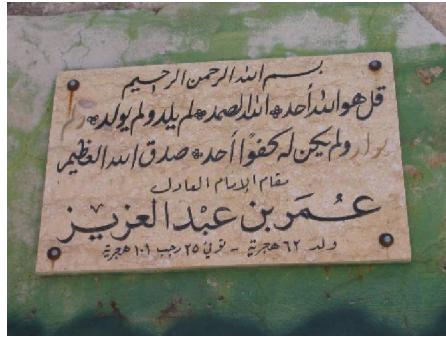 بسم الله الرحمن الرحيم
قل هو الله أحد * الله الصمد * لم يلد ولم يولد * ولم
يولد ولم يكن له كفوًا أحد * صدق الله العظيم
مقام الإمام العادل
عُمَر بن عبْد العزيز
ولد ٦٢ هجرية - توفي ٢٥ رجب ١٠١ هجرية